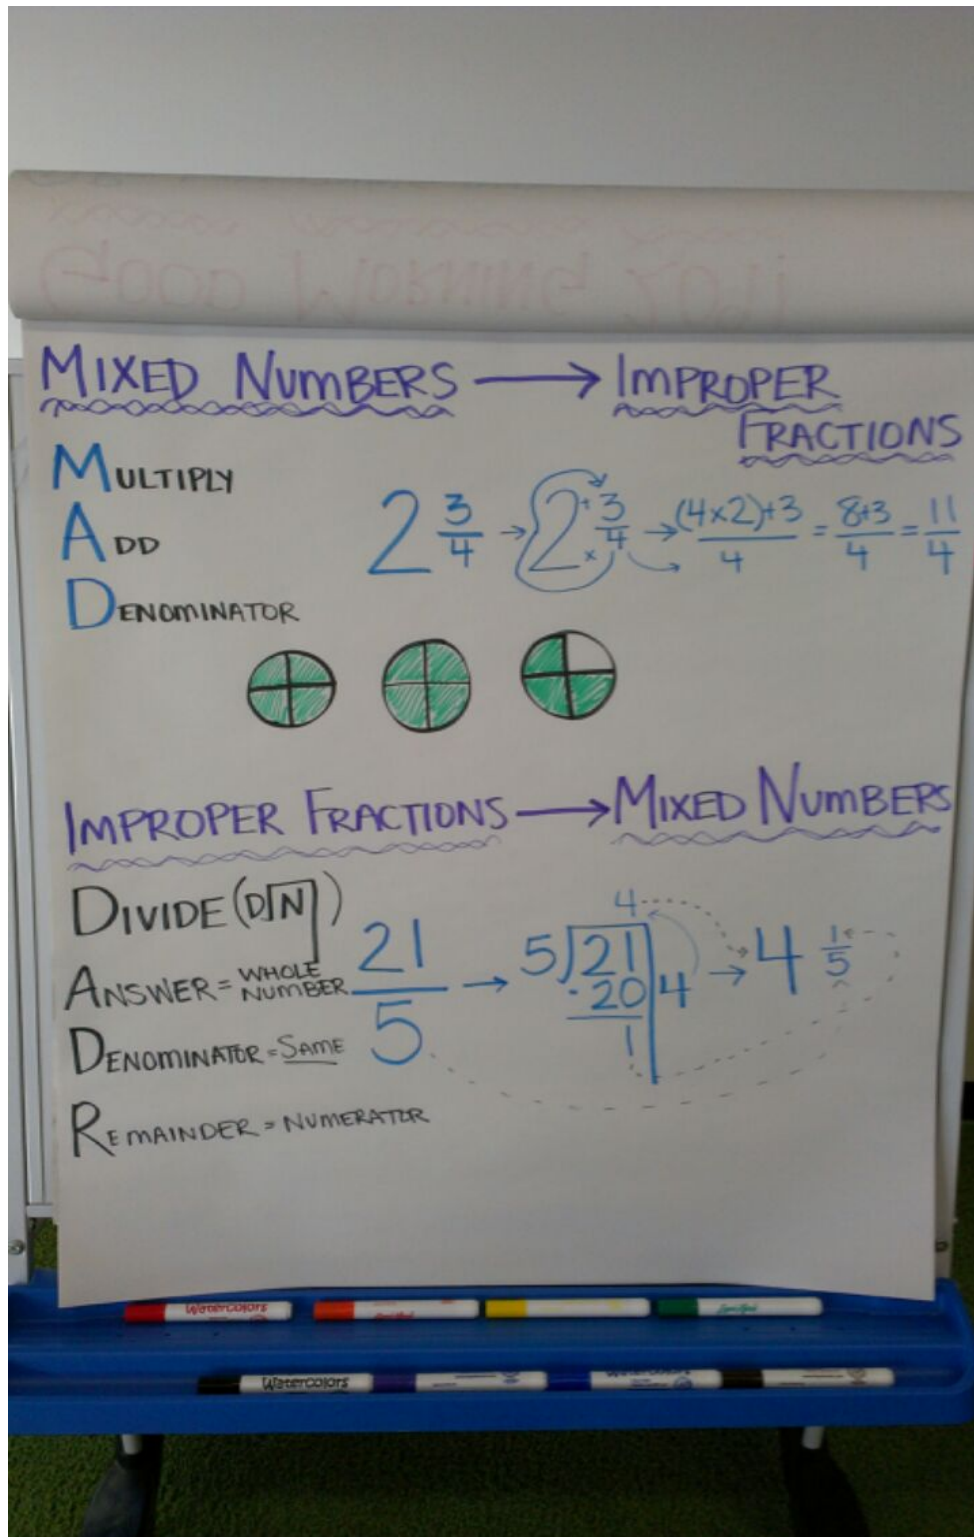 MIXED NUMBERS → IMPROPER
FRACTIONS
MULTIPLY
ADD
DENOMINATOR
2 3/4 → 2 + 3/4 x → (4x2)+3/4 = 8+3/4 = 11/4
IMPROPER FRACTIONS → MIXED NUMBERS
DIVIDE (D⟌N)
ANSWER = WHOLE
NUMBER
DENOMINATOR = SAME
REMAINDER = NUMERATOR
21/5 → 5⟌21 → 4 1/5
4
-20
4
1
Watercolors
Watercolors